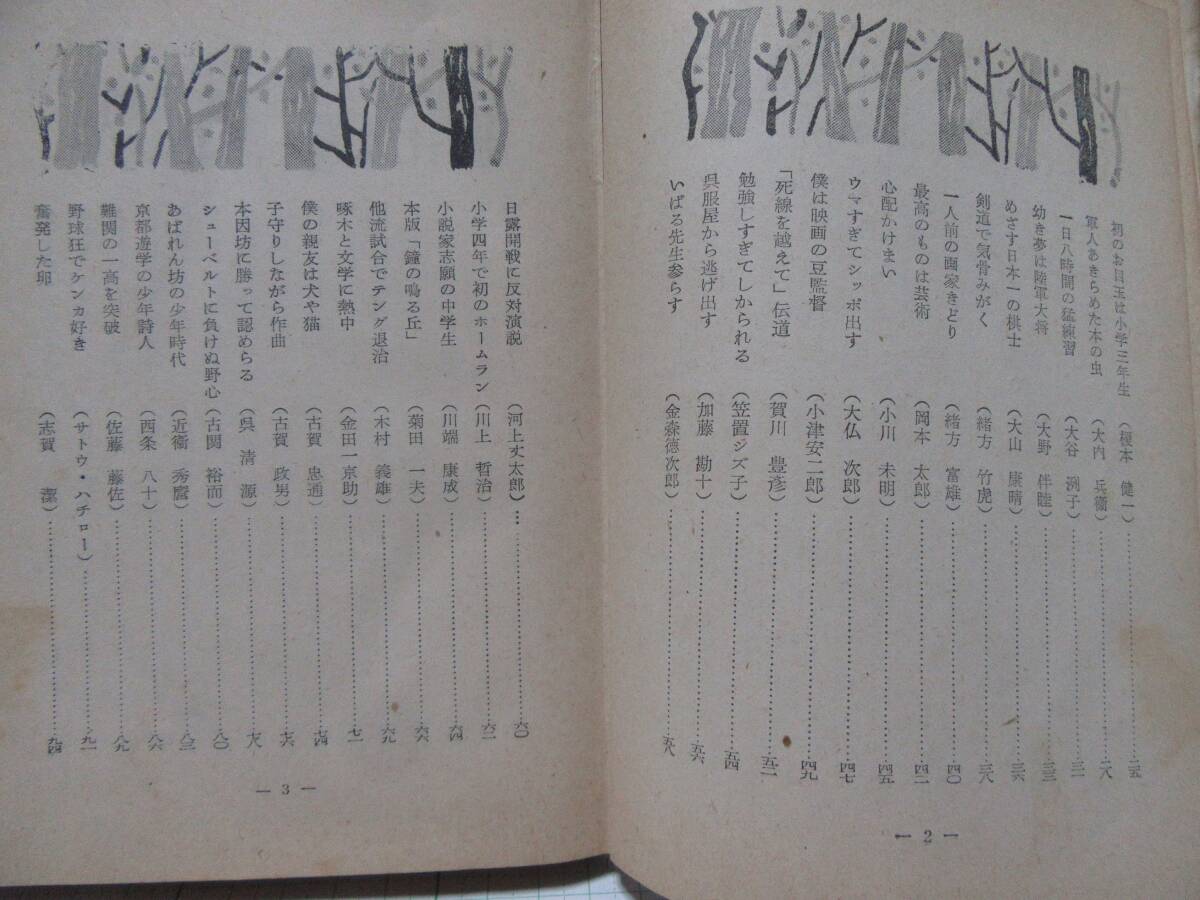 初のお目玉は小学三年生(榎本 健一)……二五
軍人あきらめた本の虫(大内 兵衛)……二八
一日八時間の猛練習(大谷 洌子)……三一
幼き夢は陸軍大将(大野 伴睦)……三三
めざす日本一の棋士(大山 康晴)……三六
剣道で気骨みがく(緒方 竹虎)……三八
一人前の画家きどり(緒方 富雄)……四〇
最高のものは芸術(岡本 太郎)……四二
心配かけまい(小川 未明)……四五
ウマすぎてシッポ出す(大仏 次郎)……四七
僕は映画の豆監督(小津安二郎)……四九
「死線を越えて」伝道(賀川 豊彦)……五二
勉強しすぎてしかられる(笠置シズ子)……五四
呉服屋から逃げ出す(加藤 勘十)……五六
いばる先生参らす(金森徳次郎)……五八
— 2 —
日露開戦に反対演説(河上丈太郎)…六〇
小学四年で初のホームラン(川上 哲治)……六二
小説家志願の中学生(川端 康成)……六四
本版「鐘の鳴る丘」(菊田 一夫)……六六
他流試合でテング退治(木村 義雄)……六九
啄木と文学に熱中(金田一京助)……七一
僕の親友は犬や猫(古賀 忠道)……七四
子守りしながら作曲(古賀 政男)……七六
本因坊に勝って認めらる(呉 清源)……七八
シューベルトに負けぬ野心(古関 裕而)……八〇
あばれん坊の少年時代(近衛 秀麿)……八三
京都遊学の少年詩人(西条 八十)……八六
難関の一高を突破(佐藤 藤佐)……八九
野球狂でケンカ好き(サトウ・ハチロー)……九一
奮発した印(志賀 潔)……九四
— 3 —